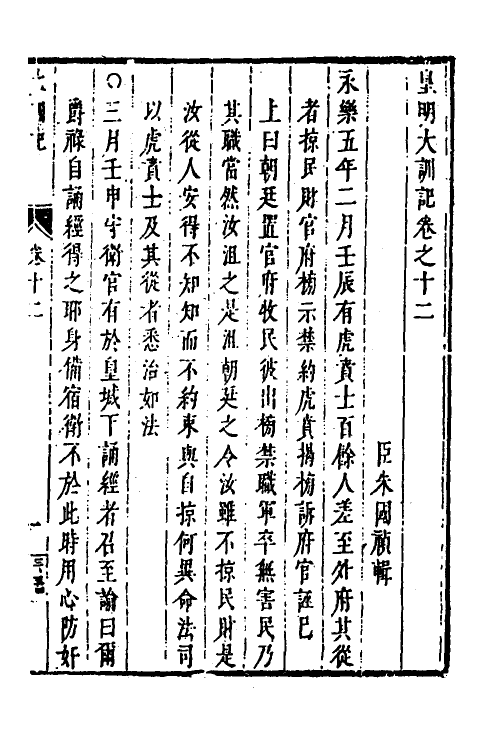 皇明大訓記卷之十二
臣朱國禎輯
永樂五年二月壬辰有虎賁士百餘人差至外府其從
者掠民財官府榜示禁約虎賁揭榜訴府官誣已
上曰朝廷置官府牧民彼出榜禁職軍卒無害民乃
其職當然汝沮之是沮朝廷之令汝雖不掠民財是
汝從人安得不知知而不約束與自掠何異命法司
以虎賁士及其從者悉治如法
○三月壬申守衛官有於皇城下誦經者召至諭曰爾
爵祿自誦經得之耶身備宿衛不於此時用心防奸
卷十二
一